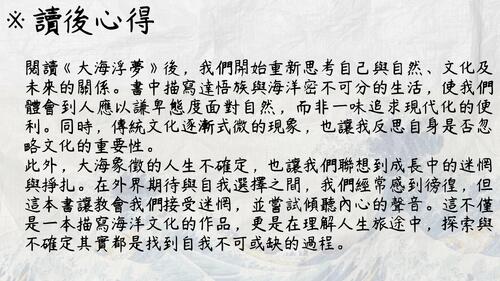 ※讀後心得
閱讀《大海浮夢》後，我們開始重新思考自己與自然、文化及
未來的關係。書中描寫達悟族與海洋密不可分的生活，使我們
體會到人應以謙卑態度面對自然，而非一味追求現代化的便
利。同時，傳統文化逐漸式微的現象，也讓我反思自身是否忽
略文化的重要性。
此外，大海象徵的人生不確定，也讓我們聯想到成長中的迷惘
與掙扎。在外界期待與自我選擇之間，我們經常感到徬徨，但
這本書讓教會我們接受迷惘，並嘗試傾聽內心的聲音。這不僅
是一本描寫海洋文化的作品，更是在理解人生旅途中，探索與
不確定其實都是找到自我不可或缺的過程。